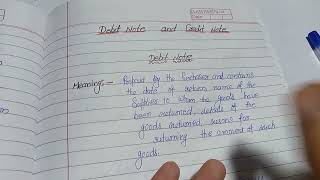 Debit Note and Credit Note
Debit Note
Meaning:- Prepared by the Purchaser and contains
the date of return, name of the
Supplier to whom the goods have
been returned, details of the
goods returned, reasons for
returning the amount of such
goods.